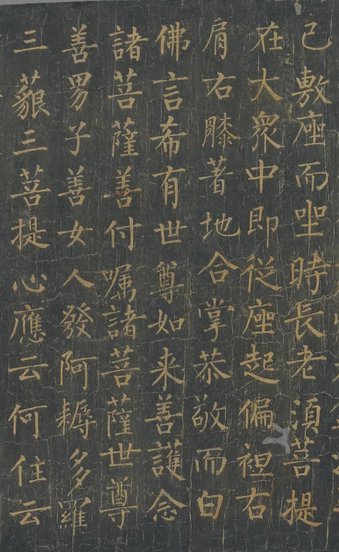 已敷座而坐時長老須菩提
在大衆中即從座起偏袒右
肩右膝著地合掌恭敬而白
佛言希有世尊如来善護念
諸菩薩善付囑諸菩薩世尊
善男子善女人發阿耨多羅
三藐三菩提心應云何住云